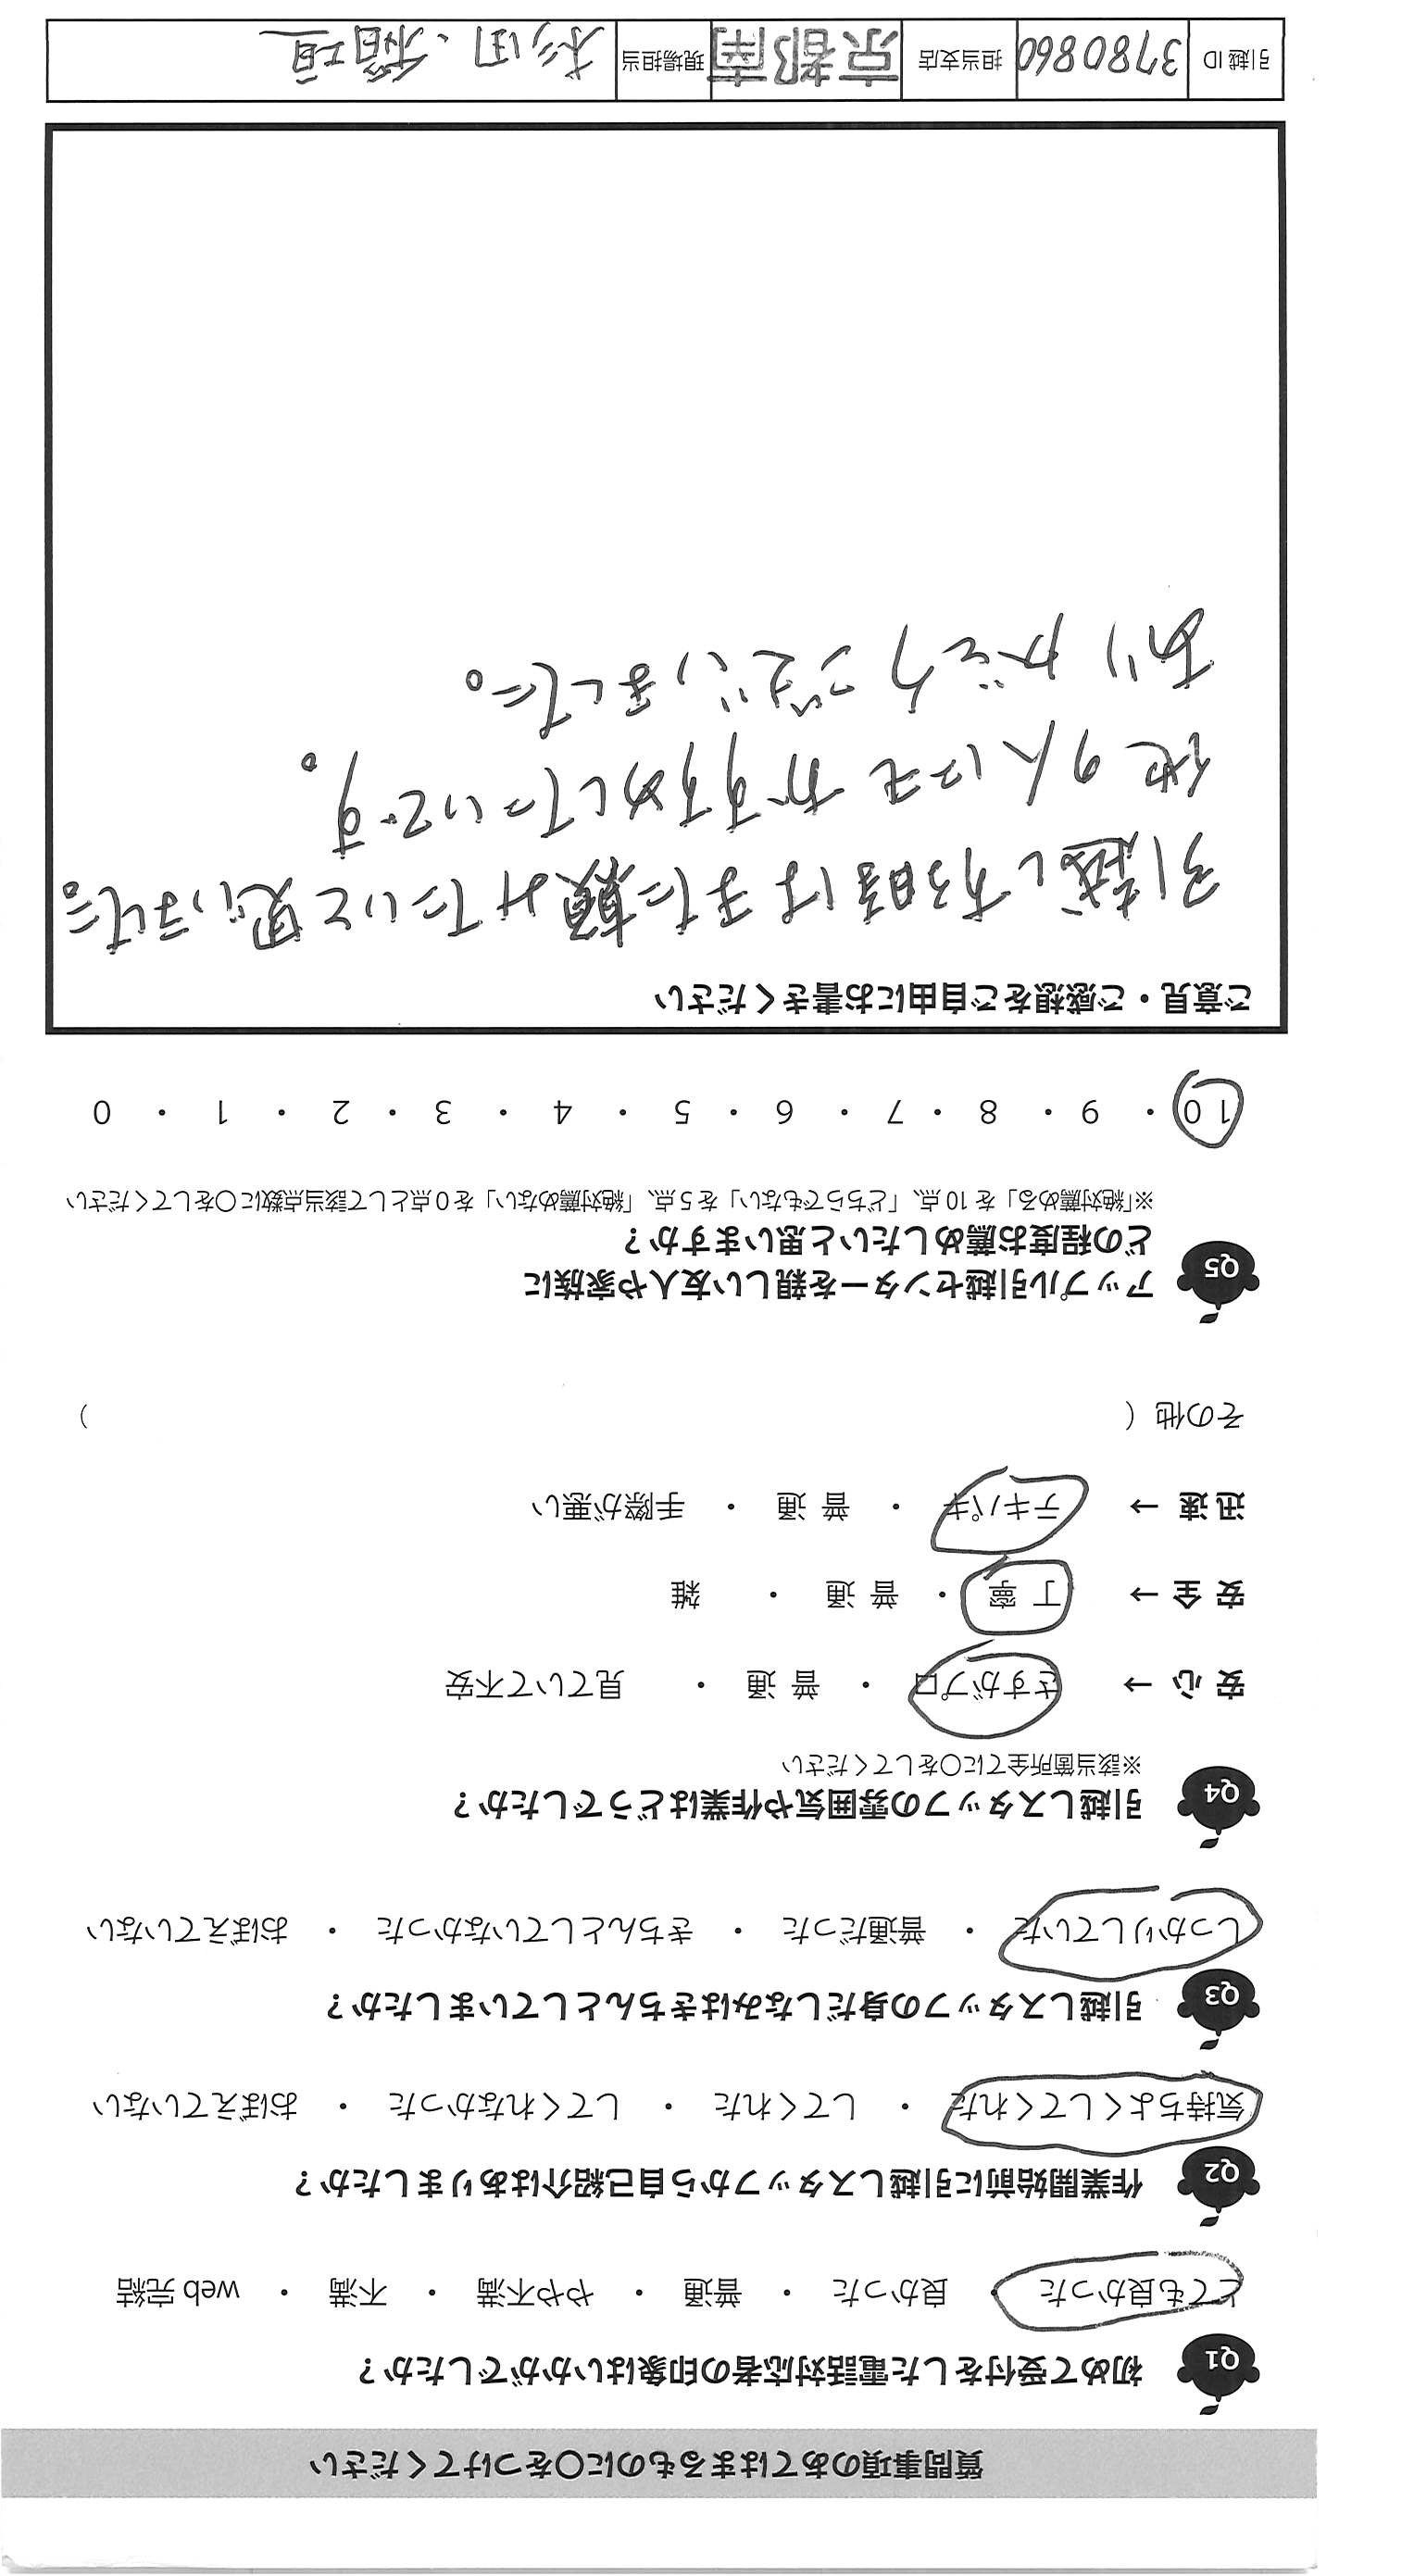 質問事項のあてはまるものに〇をつけてください
Q1 初めて受付をした電話対応者の印象はいかがでしたか？
とても良かった ・ 良かった ・ 普通 ・ やや不満 ・ 不満 ・ web 完結
Q2 作業開始前に引越しスタッフから自己紹介はありましたか？
気持ちよくしてくれた ・ してくれた ・ してくれなかった ・ おぼえていない
Q3 引越しスタッフの身だしなみはきちんとしていましたか？
しっかりしていた ・ 普通だった ・ きちんとしていなかった ・ おぼえていない
Q4 引越しスタッフの雰囲気や作業はどうでしたか？
※該当箇所全てに〇をしてください
安 心 → さすがプロ ・ 普 通 ・ 見ていて不安
安 全 → 丁 寧 ・ 普 通 ・ 雑
迅 速 → テキパキ ・ 普 通 ・ 手際が悪い
その他（ ）
Q5 アップル引越センターを親しい友人や家族に
どの程度お薦めしたいと思いますか？
※「絶対薦める」を 10 点、「どちらでもない」を 5 点、「絶対薦めない」を 0 点として該当点数に〇をしてください
10 ・ 9 ・ 8 ・ 7 ・ 6 ・ 5 ・ 4 ・ 3 ・ 2 ・ 1 ・ 0
ご意見・ご感想をご自由にお書きください
引越しする時はまた頼みたいと思いました。
他の人にもおすすめしたいです。
ありがとうございました。
引越 ID 3780860 担当支店 京都南 現場担当 杉田、稲垣